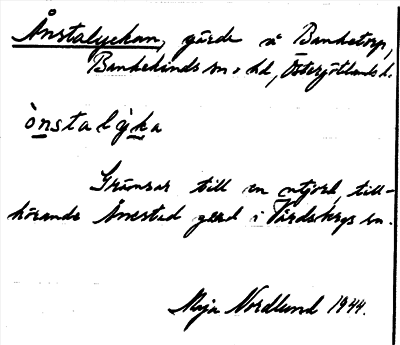 Ånstalyckan, gärde å Banketorp,
Bankekinds sn o hd, Östergötlands l.
ònstalỳka
Gränsar till en utjord, till-
hörande Ånestad gård i Vårdsbergs sn.
Maja Nordlund 1944.